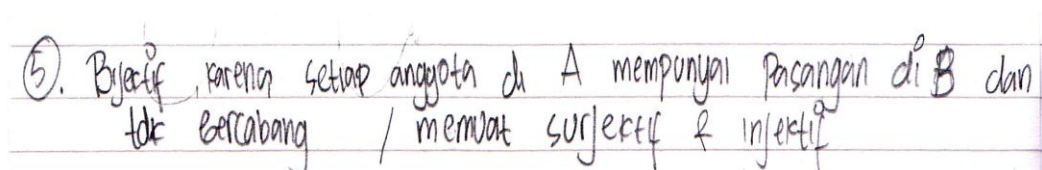 ⑤. Bijectif, karena setiap anggota di A mempunyai Pasangan di B dan
tdk bercabang / memuat surjectif & injektif